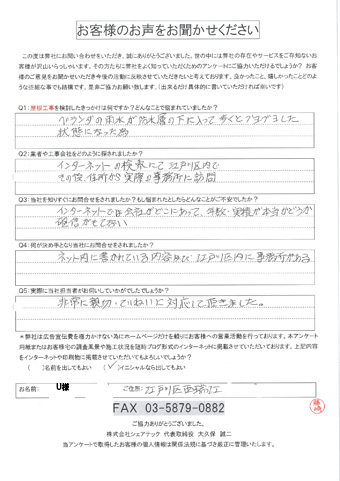 お客様のお声をお聞かせください
この度は弊社にお問い合わせをいただき、誠にありがとうございました。世の中には弊社の存在やサービスをご存知ないお
客様が沢山いらっしゃいます。その方たちに弊社をよく知っていただくためのアンケートにご協力いただけるでしょうか？ お客
様のご意見をお聞かせいただき今後の活動に反映させていただきたいと考えております。良かったこと、嬉しかったことどのよ
うな些細な事でも結構です、是非ご協力お願い致します。（出来るだけ具体的に書いていただければ幸いです）
Q1：屋根工事を検討したきっかけは何ですか？どんなことで悩まれていましたか？
ベランダの雨水が防水層の下に入って歩くとブヨブヨした
状態になった為
Q2：業者や工事会社をどのように探されましたか？
インターネットの検索にて江戸川区内で
その後、住所から実際の事務所に訪問
Q3：当社を知りすぐにお問合せをされましたか？もし悩まれたとしたらどんなことがご不安でしたか？
インターネットでは会社がどこにあって、年数・実績が本当かどうか
確信がもてない
Q4：何が決め手となり当社にお問合せをされましたか？
ネット内に書かれている内容及び江戸川区内に事務所がある
Q5：実際に当社担当者がお伺いしていかがでしたでしょうか？
非常に親切・ていねいに対応して頂きました。
＊弊社は広告宣伝費を極力かけない為にホームページだけを頼りにお客様への営業活動を行っております。本アンケート
用紙またはお客様宅の調査風景や施工状況を随時ブログ形式のインターネットに掲載させていただいております。上記内容
をインターネットや印刷物に掲載させていただいてもよろしいでしょうか？
（ ）名前を出してもよい （✓）イニシャルなら出してもよい
お名前： U様 ご住所： 江戸川区西瑞江
FAX 03-5879-0882
ご協力ありがとうございました。
株式会社シェアテック 代表取締役 大久保 誠二
当アンケートで取得したお客様の個人情報は関係法規に基づき厳正に管理いたします。